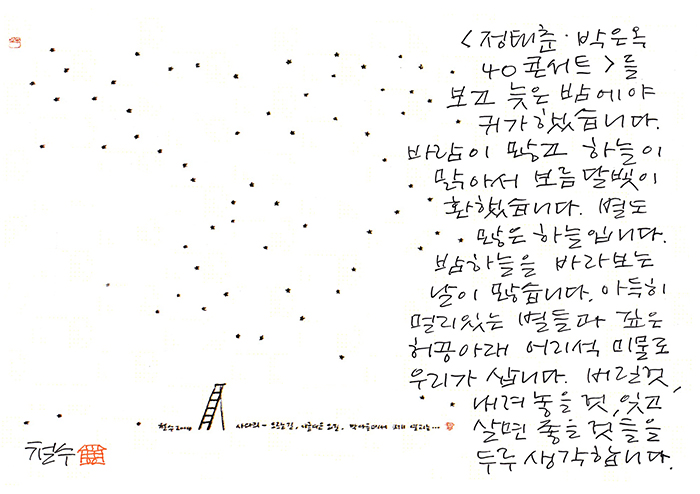 <정태춘·박은옥
40콘서트>를
보고 늦은 밤에야
귀가했습니다.
바람이 많고 하늘이
맑아서 보름달빛이
환했습니다. 별도
많은 하늘입니다.
밤하늘을 바라보는
날이 많습니다. 아득히
멀리있는 별들과 깊은
허공아래 어리석 미물로
우리가 삽니다. 버릴것,
내려놓을 것, 잊고
살면 좋을 것들을
두루 생각합니다.
철수2004 사다리-오르는길,
철수